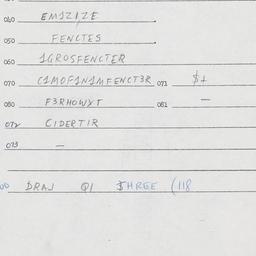 040 EM1ZIZE
050 FENCTES
060 1GROSFENCTER
070 C1MOF1N1MFENCT3R 071 $+
080 F3RHOWXT 081 —
072 CIDERTIR
073 —
DRAJ QI $HREE (118